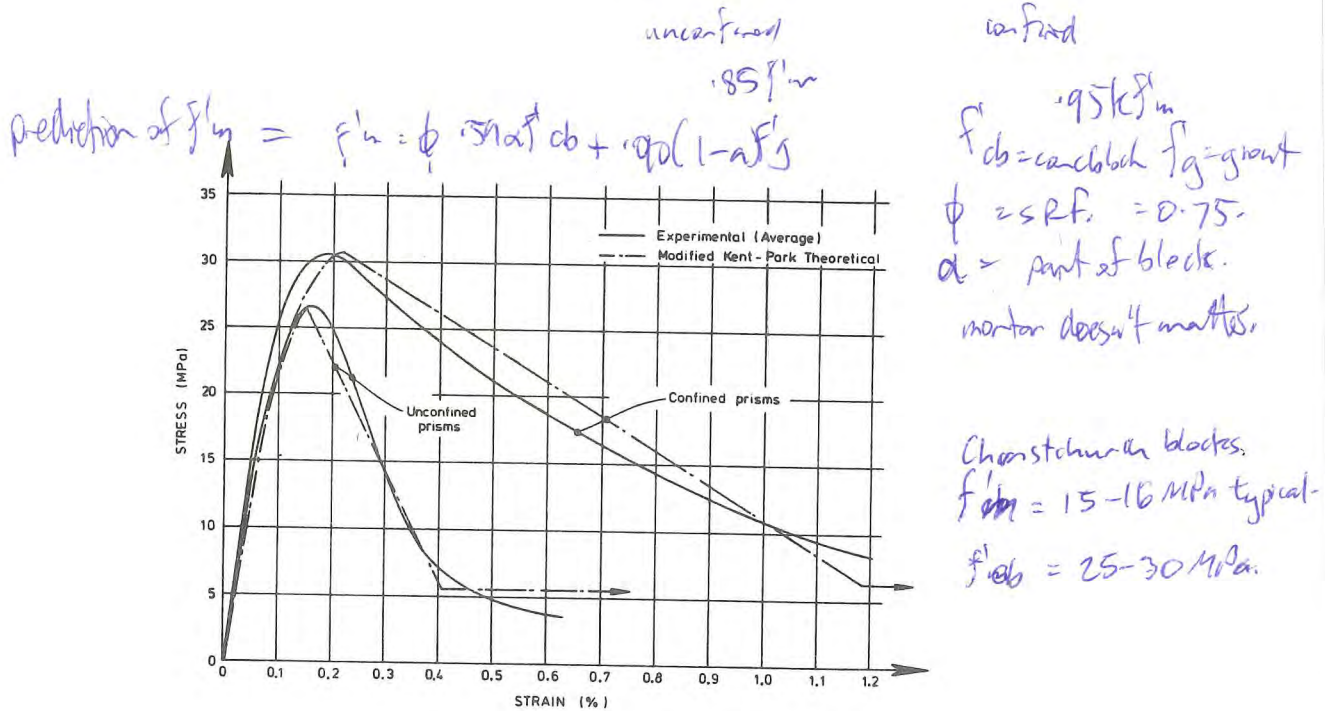 unconfined
.85f'm
confined
.95kf'm
prediction of f'm = f'm = ϕ .59αf'cb + .90(1-α)f'g
f'cb = conc block f'g = grout
ϕ = SRF. = 0.75.
α = part of block.
mortar doesn't matter.
Christchurch blocks.
f'm = 15-16 MPa typical-
f'cb = 25-30 MPa.
35
30
25
20
15
10
5
0
STRESS (MPa)
Experimental (Average)
Modified Kent-Park Theoretical
Unconfined
prisms
Confined prisms
0 0.1 0.2 0.3 0.4 0.5 0.6 0.7 0.8 0.9 1.0 1.1 1.2
STRAIN (%)